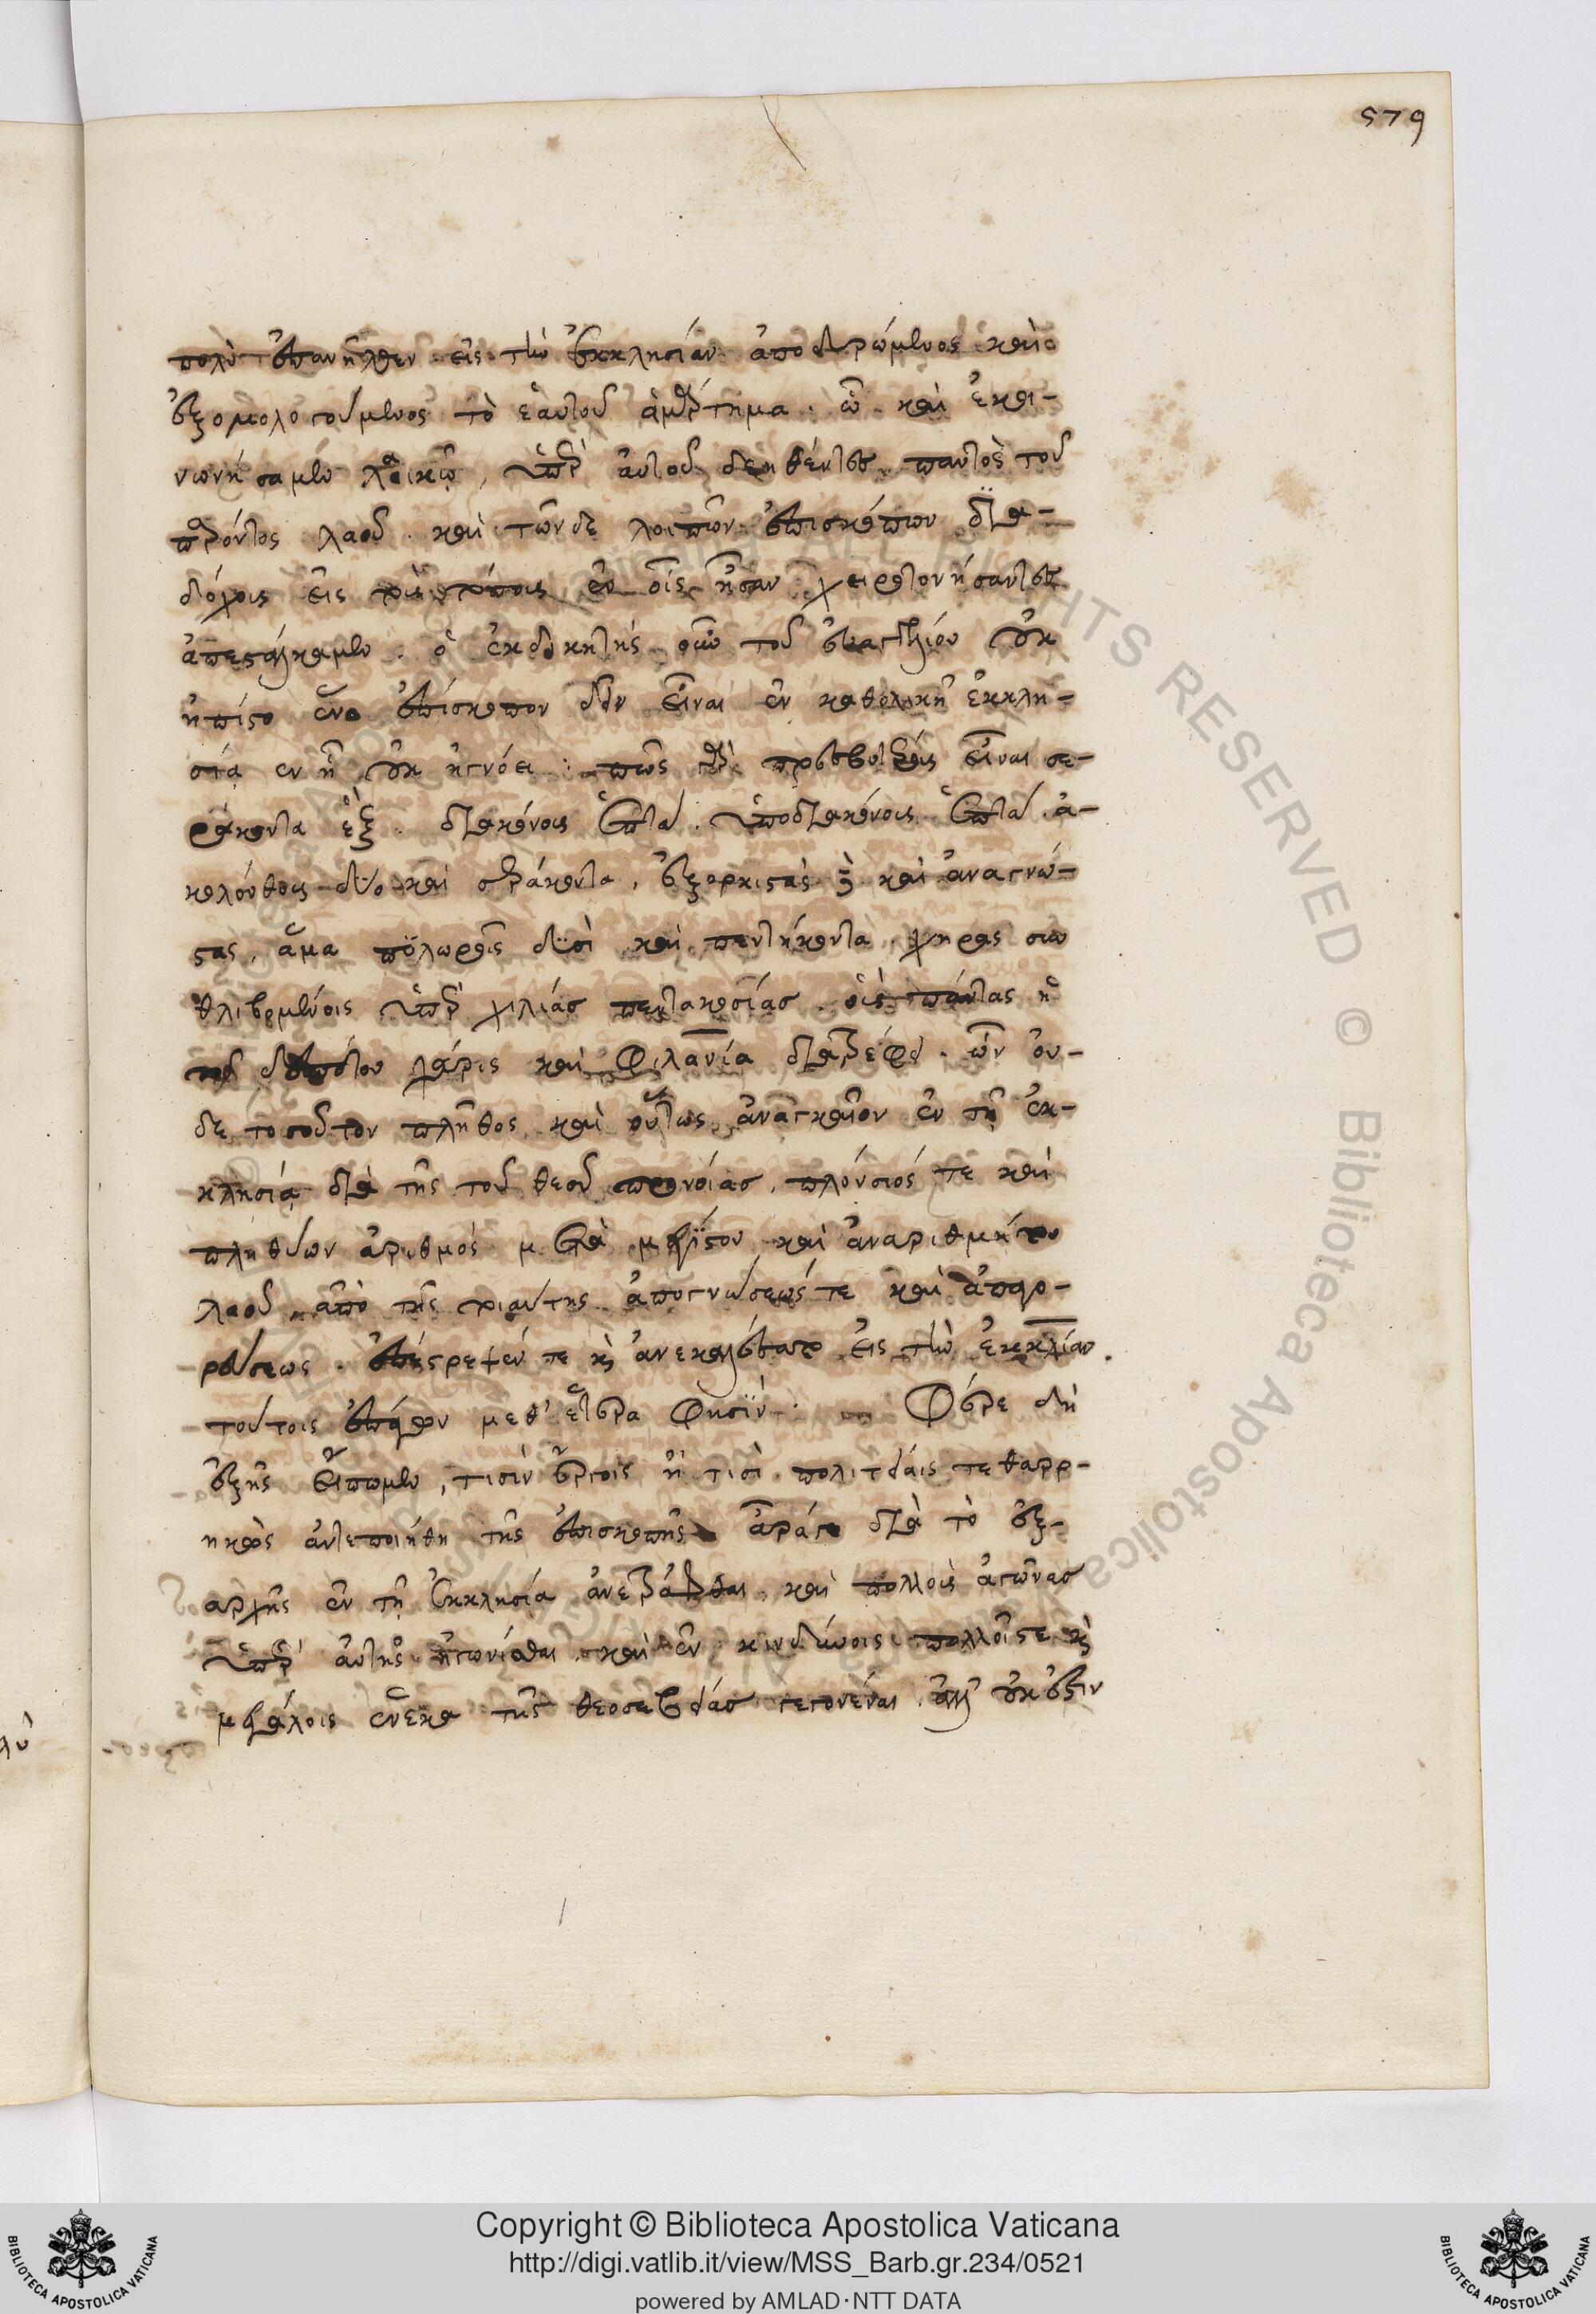 579
πολὺ ἐπανῆλθεν εἰς τὴν ἐκκλησίαν ἀποδυρώμενος καὶ
ἐξομολογούμενος τὸ ἑαυτοῦ ἁμάρτημα. ὧ καὶ ἐκοι-
νωνήσαμεν λαικῶ, ὑπὲρ αὐτοῦ δεηθέντες παντὸς τοῦ
παρόντος λαοῦ. καὶ τῶν δὲ λοιπῶν ἐπισκόπων δϊα-
δόχοις εἰς τοὺς τόποις ἐν οἷς ἦσαν χειροτονήσαντες
ἀπεστάλκαμεν. ὁ ἐκδικητὴς οὖν τοῦ εὐαγγελίου οὐκ
ἠπίστο ἕνα ἐπίσκοπον δεῖν εἶναι ἐν καθολικῆ ἐκκλη-
σία ἐν ἧ οὐκ ἠγνόει· πῶς γὰρ πρεσβυτέροις εἶναι σε-
ράκοντα ἓξ. διακόνοις ἑπτά. ὑποδιακόνοις ἑπτά. ἀ-
κολούθοις δύο καὶ σεράκοντα, ἐξορκιστὰς δὲ καὶ ἀναγνώ-
στας, ἅμα πϋλωροῖς δϋσὶ καὶ πεντήκοντα, χήρας σὺν
θλιβομένοις ὑπὲρ χιλίας πεντακοσίας. οἷς πάντας ἡ
τοῦ δεσπότου χάρις καὶ φιλανία διατρέφει. ὧν οὐ-
δὲ τοσοῦτον πλῆθος καὶ οὕτως ἀναγκαῖον ἐν τῆ ἐκ-
κλησία διὰ τῆς τοῦ θεοῦ προνοίας, πλούσιός τε καὶ
πληθύων ἀριθμὸς μετὰ μεγίστου καὶ ἀναριθμήτου
λαοῦ, ἀπὸ τῆς τοιαύτης ἀπογνώσεώς τε καὶ ἀπαγο-
ρεύσεως. ἐπέστρεψέν τε κὶ ἀνεκαλέσατο εἰς τὴν ἐκκλίαν.
τούτοις ἐπάγων μεθ' ἕτερα φησϊν· Φέρε δὴ
ἐξῆς εἴπωμεν, τισὶν ἔργοις ἢ τισὶ πολιτείαις τεθαρρ-
ηκὸς ἀντεποιήθη τῆς ἐπισκοπῆς ἆράγε διὰ τὸ ἐξ-
αρχῆς ἐν τῆ ἐκκλησία ἀνεστράφθαι. καὶ πολλοὺς ἀγῶνας
ὑπὲρ αὐτῆς ἠγωνίσθαι. καὶ ἐν κινδύνοις πολλοῖς τε κὶ
μεγάλοις ἕνεκα τῆς θεοσεβείας γεγονέναι. ἀλλ' οὐκ ἔστιν
Copyright © Biblioteca Apostolica Vaticana
http://digi.vatlib.it/view/MSS_Barb.gr.234/0521
powered by AMLAD·NTT DATA